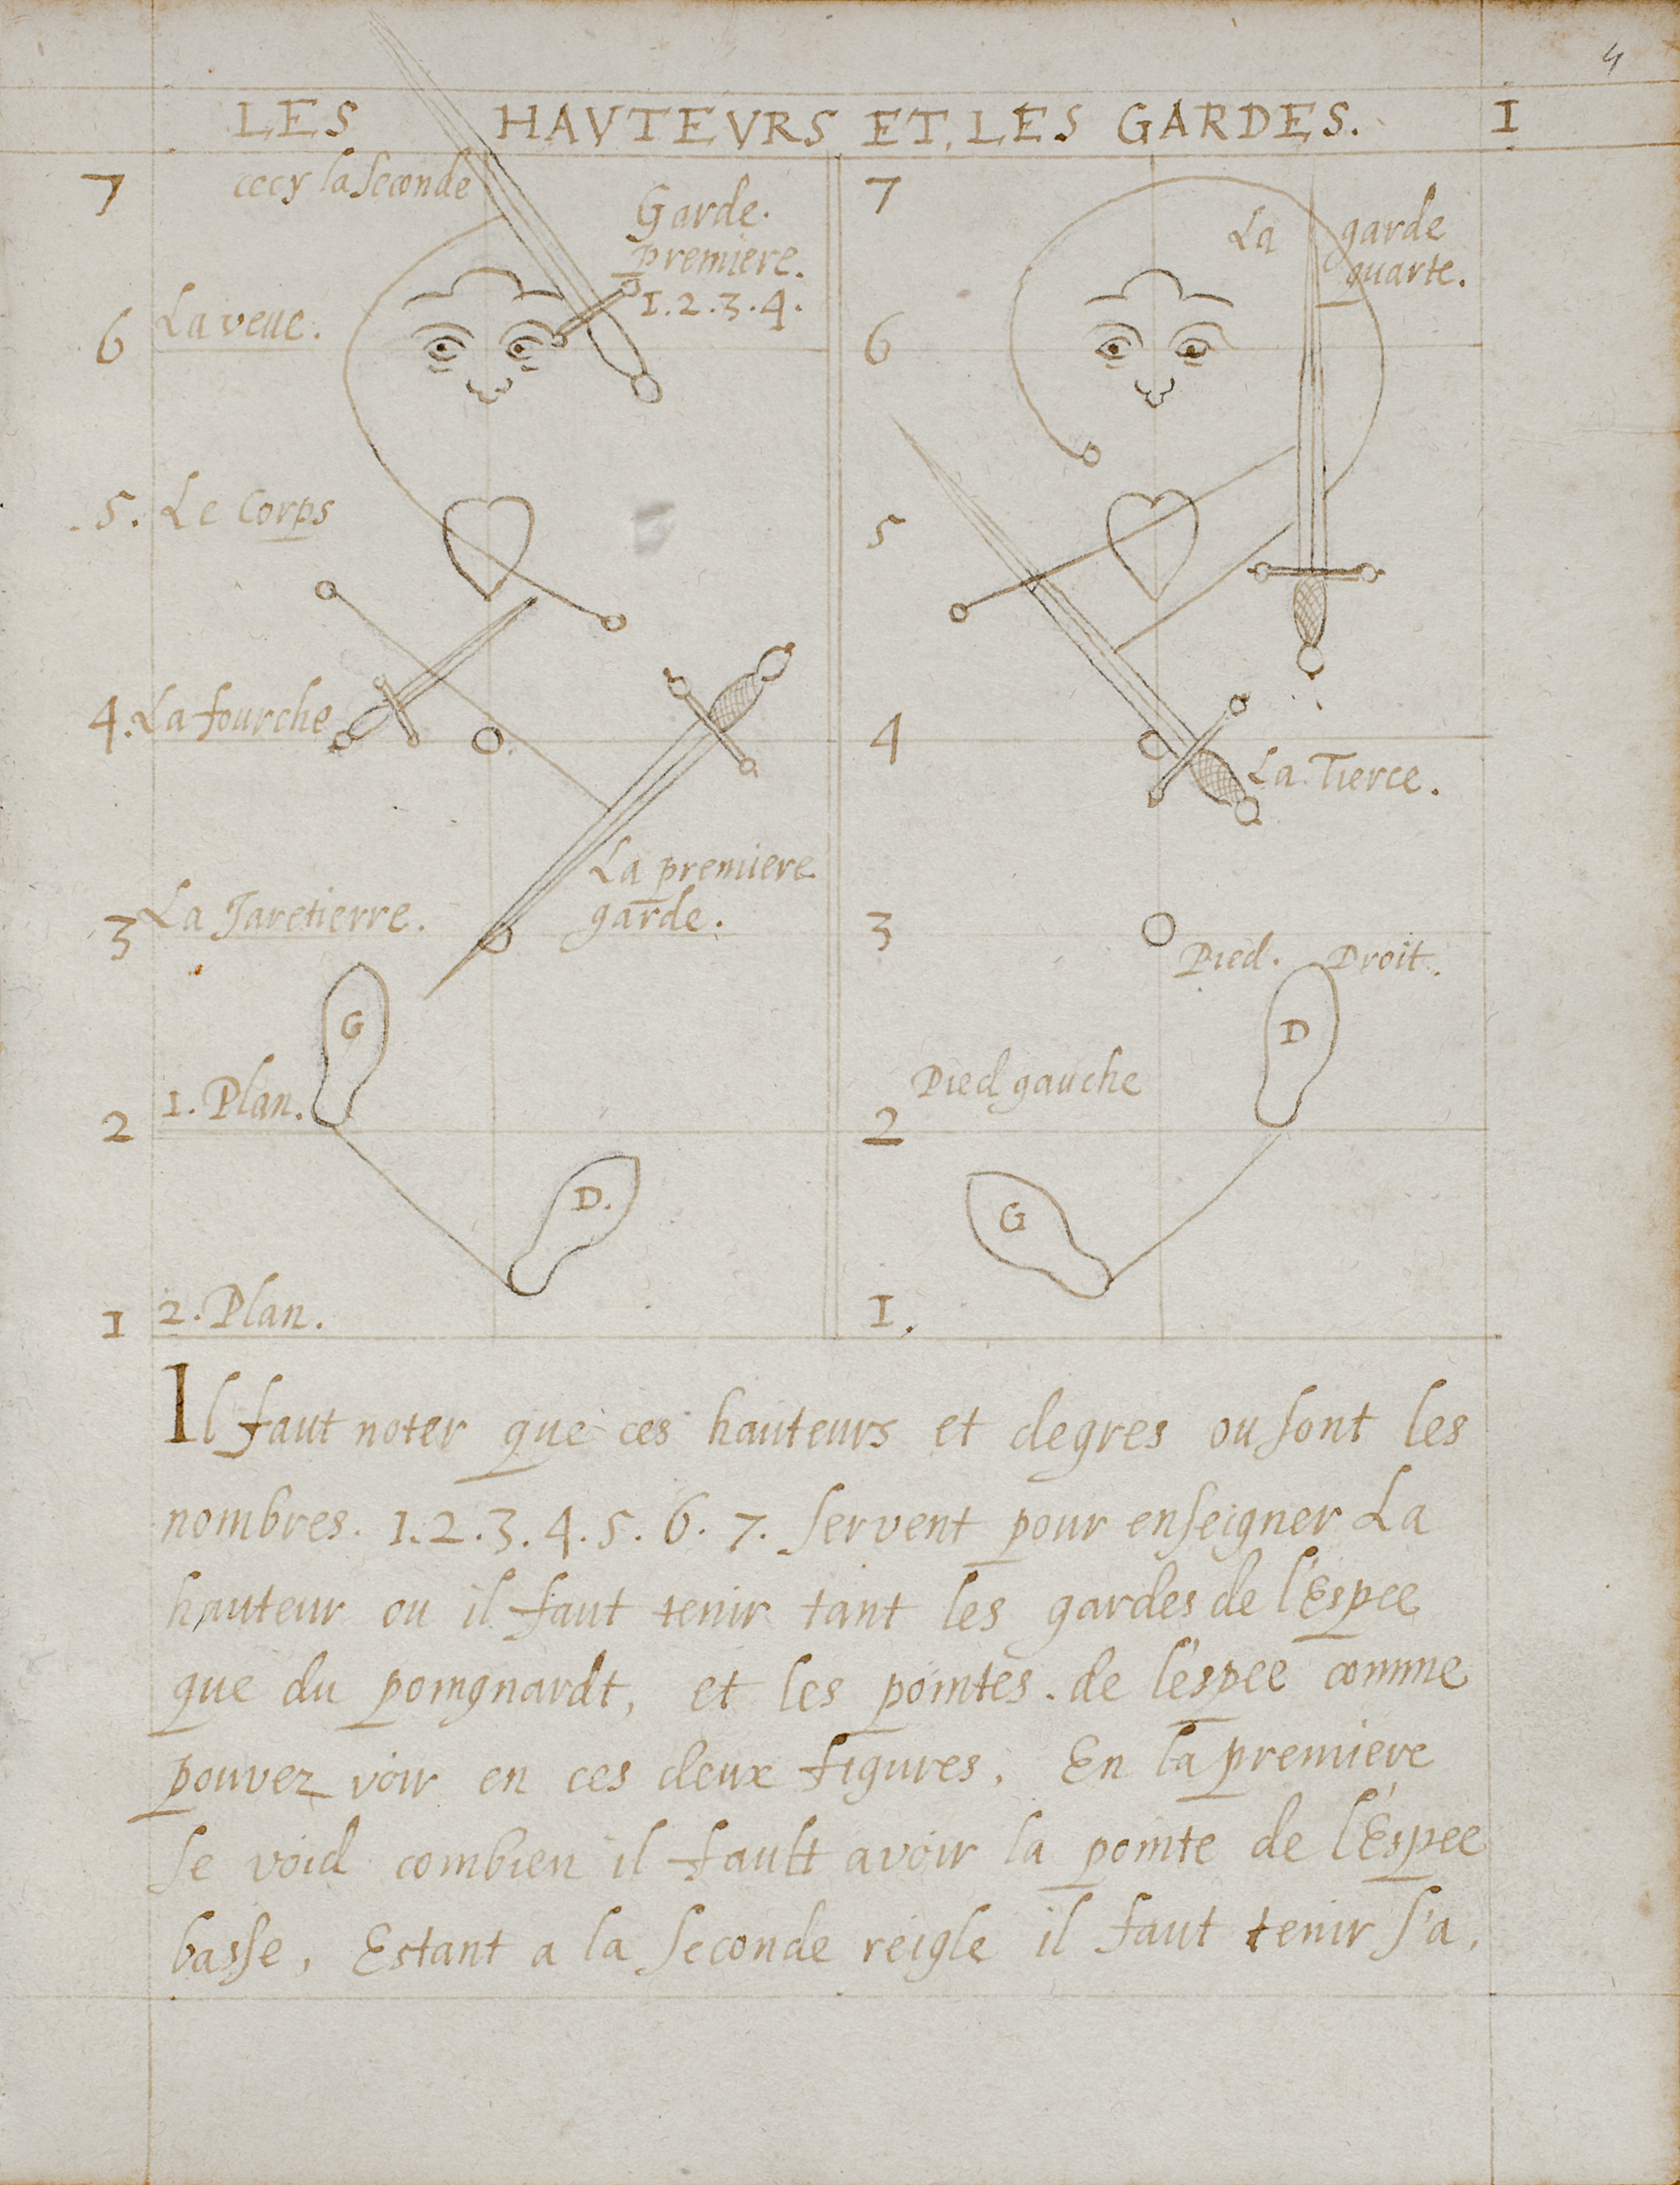 4
LES HAVTEVRS ET. LES GARDES. I
7
cecy la seconde
Garde.
premiere.
1.2.3.4.
6 La veue.
5. Le Corps
4. La fourche
La premiere
garde.
3 La Jaretierre.
G
2 1. Plan.
D.
1 2. Plan.
7
La garde
quarte.
6
5
4
La Tierce.
3
Pied. Droit.
D
Pied gauche
2
G
I.
Il faut noter que ces hauteurs et degres ou sont les
nombres. 1.2.3.4.5.6.7. servent pour enseigner La
hauteur ou il faut tenir tant les gardes de l'Espee
que du poingnardt, et les pointes. de l'espee comme
pouvez voir en ces deux figures, En la premiere
se void combien il fault avoir la pointe de l'Espee
basse, Estant a la seconde reigle il faut tenir s'a,